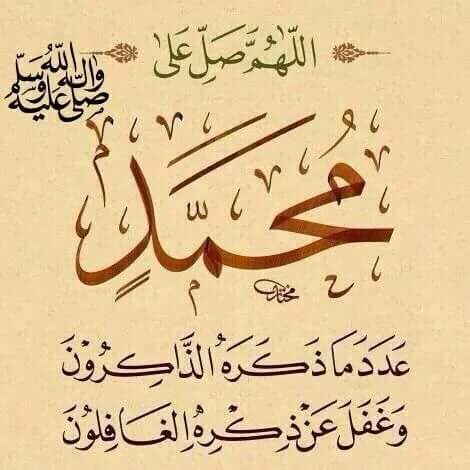 اللّهُمَّ صَلِّ عَلىٰ
صلى الله عليه وآله وسلم
مُحَمَّدٍ
مختار
عَدَدَ مَا ذَكَرَهُ الذَّاكِرُونَ
وَغَفَلَ عَنْ ذِكْرِهِ الغَافِلُونَ